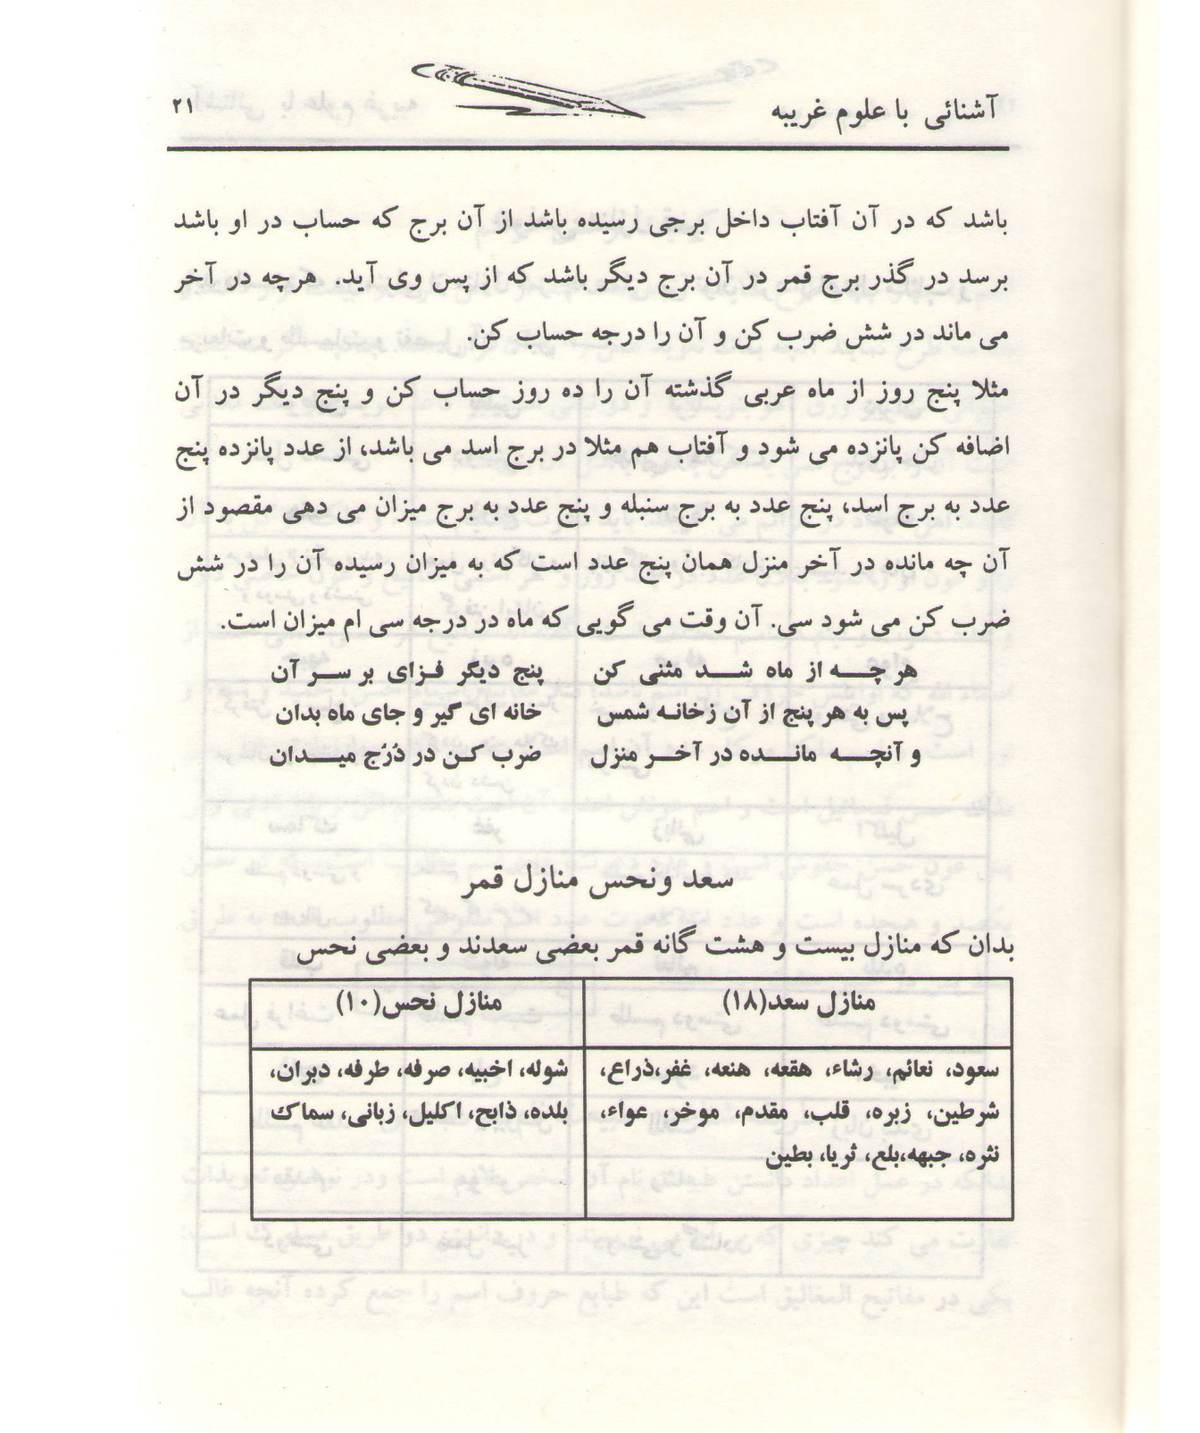 آشنائی با علوم غریبه
۲۱
باشد که در آن آفتاب داخل برجی رسیده باشد از آن برج که حساب در او باشد
برسد در گذر برج قمر در آن برج دیگر باشد که از پس وی آید. هرچه در آخر
می ماند در شش ضرب کن و آن را درجه حساب کن.
مثلا پنج روز از ماه عربی گذشته آن را ده روز حساب کن و پنج دیگر در آن
اضافه کن پانزده می شود و آفتاب هم مثلا در برج اسد می باشد، از عدد پانزده پنج
عدد به برج اسد، پنج عدد به برج سنبله و پنج عدد به برج میزان می دهی مقصود از
آن چه مانده در آخر منزل همان پنج عدد است که به میزان رسیده آن را در شش
ضرب کن می شود سی. آن وقت می گویی که ماه در درجه سی ام میزان است.
هر چه از ماه شد مثنی کن پنج دیگر فزای بر سر آن
پس به هر پنج از آن زخانه شمس خانه ای گیر و جای ماه بدان
و آنچه مانده در آخر منزل ضرب کن در دَرَج میدان
سعد ونحس منازل قمر
بدان که منازل بیست و هشت گانه قمر بعضی سعدند و بعضی نحس
منازل سعد(۱۸)
منازل نحس(۱۰)
سعود، نعائم، رشاء، هقعه، هنعه، غفر،ذراع،
شرطین، زبره، قلب، مقدم، موخر، عواء،
نثره، جبهه،بلع، ثریا، بطین
شوله، اخبیه، صرفه، طرفه، دبران،
بلده، ذابح، اکلیل، زبانی، سماک